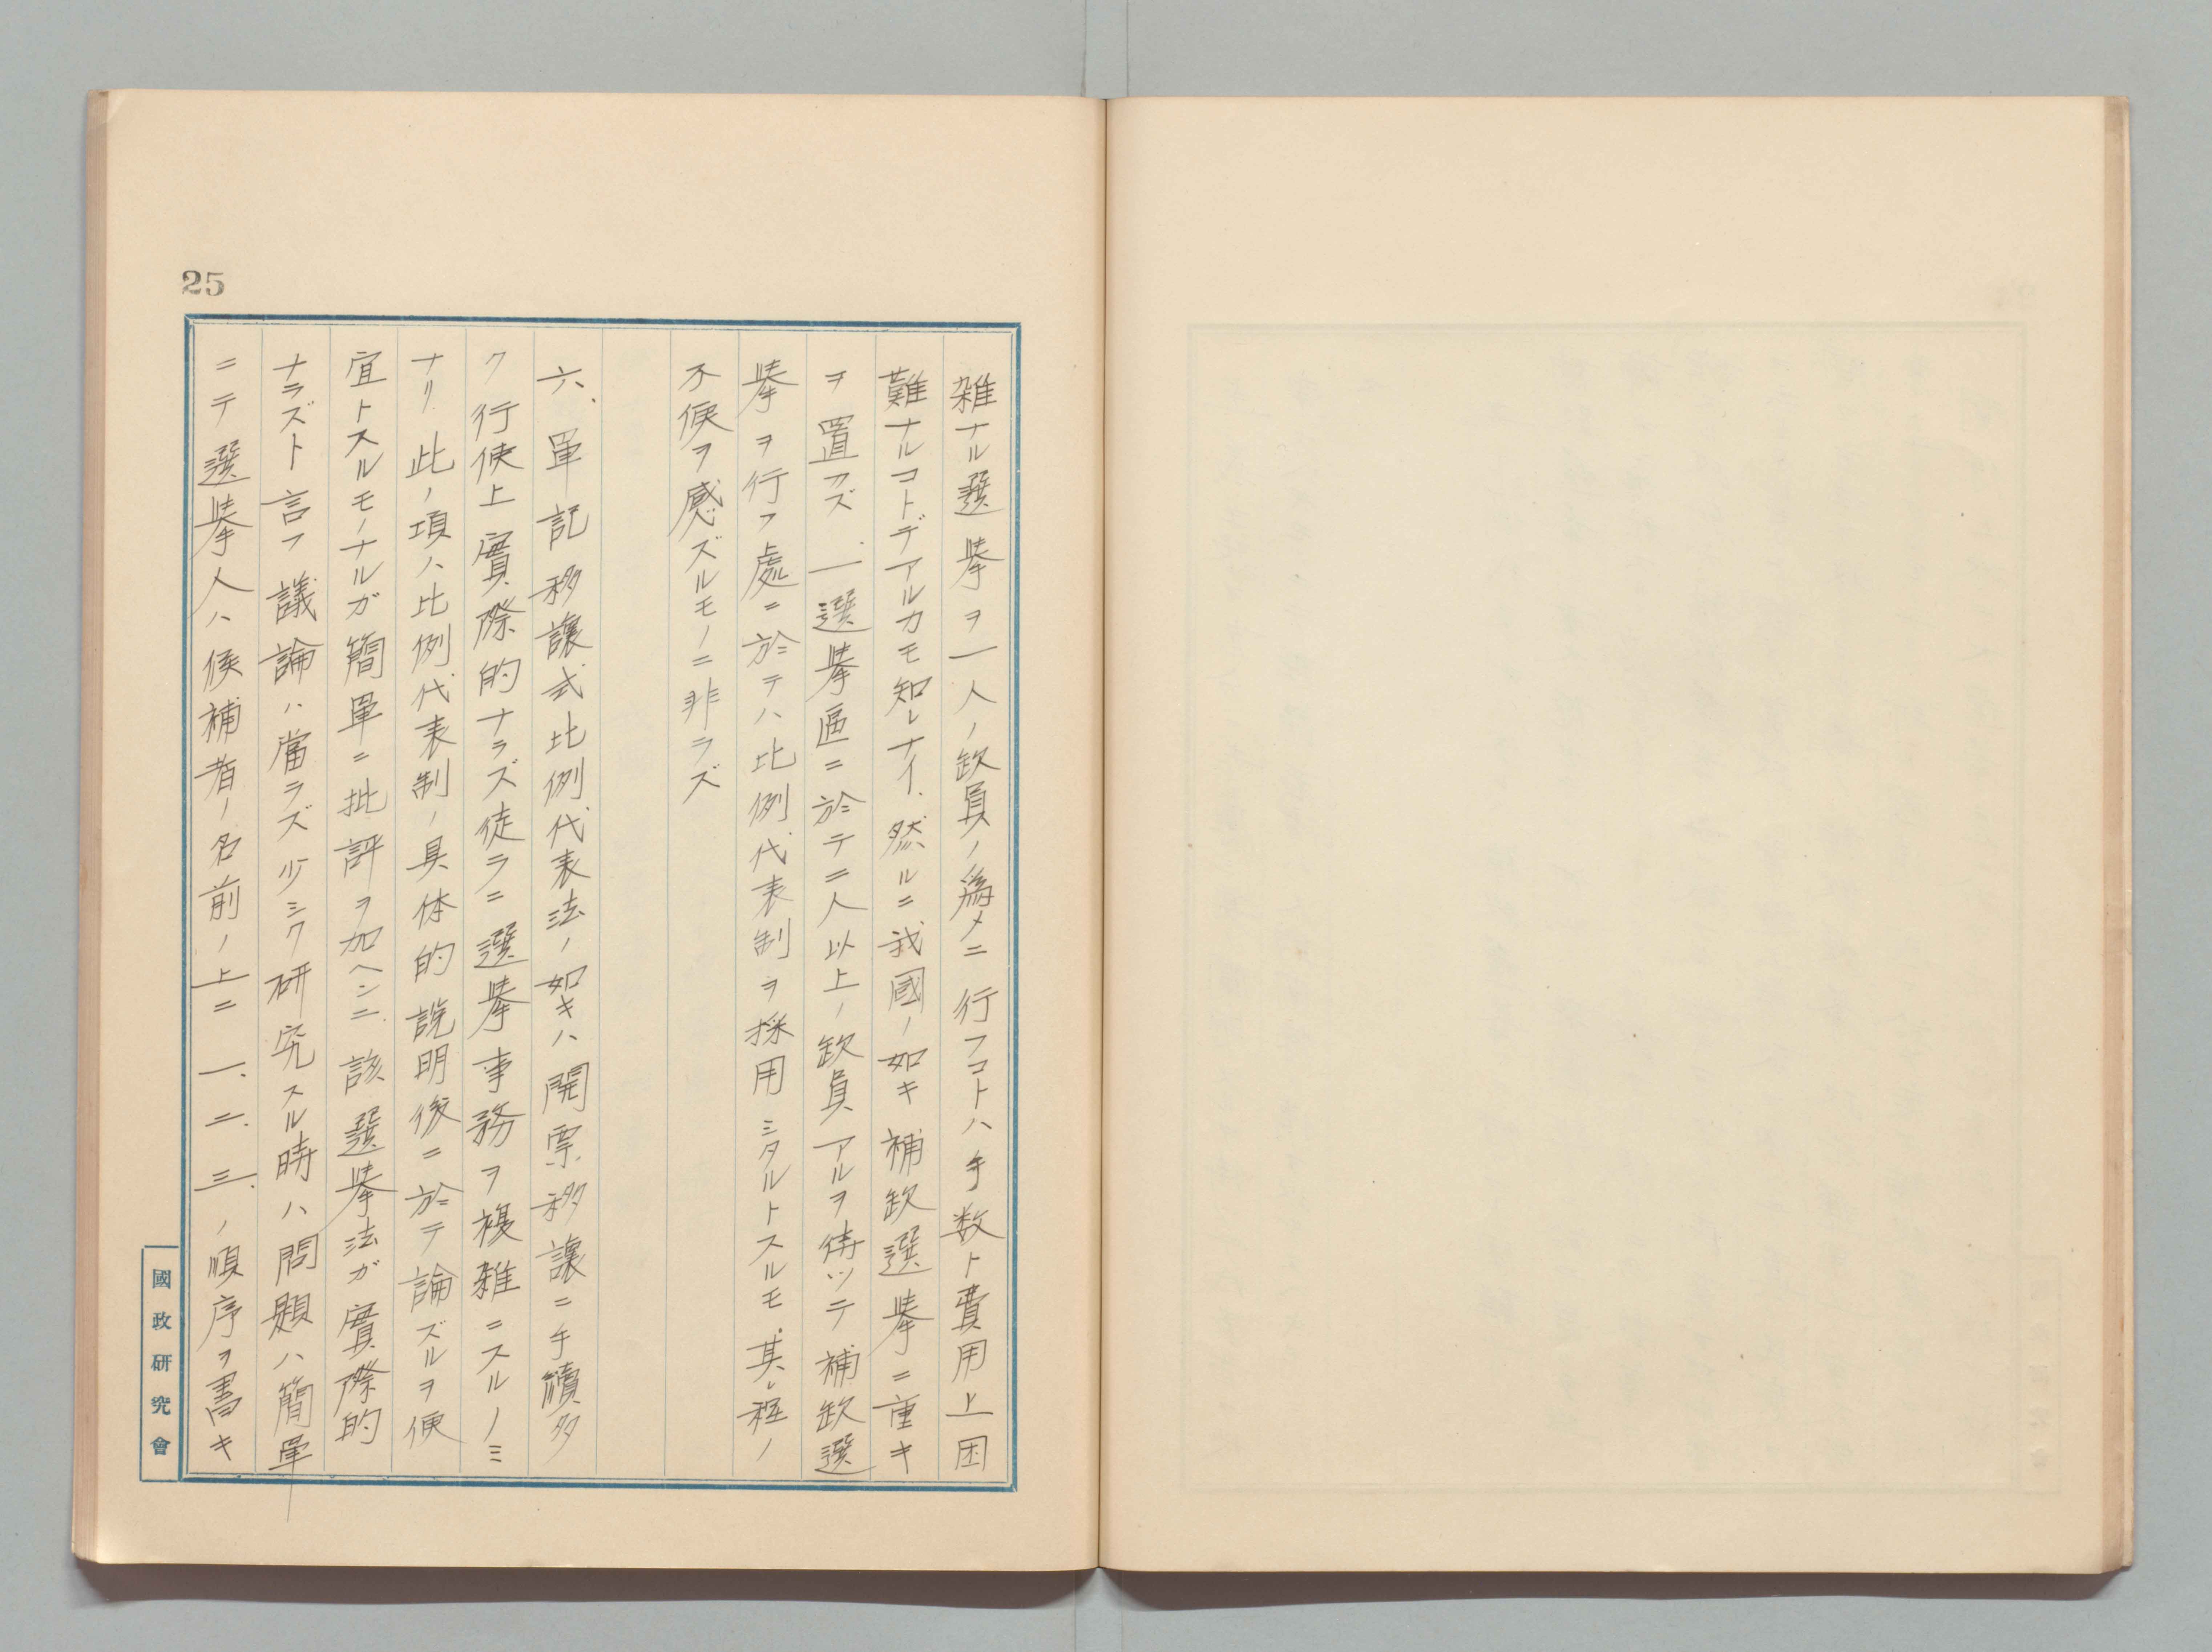 25
雑ナル選挙ヲ一人ノ欽員ノ為メニ行フコトハ手数ト費用上困
難ナルコトデアルカモ知レナイ、然ルニ我國ノ如キ補欽選挙ニ重キ
ヲ置カズ、一選挙區ニ於テ二人以上ノ欽員アルヲ待ツテ補欽選
挙ヲ行フ處ニ於テハ比例代表制ヲ採用シタルトスルモ其レ程ノ
不便ヲ感ズルモノニ非ラズ
六、單記移讓式比例代表法ノ如キハ開票移讓ニ手續多
ク行使上實際的ナラズ徒ラニ選挙事務ヲ複雑ニスルノミ
ナリ 此ノ項ハ比例代表制ノ具体的説明後ニ於テ論ズルヲ便
宜トスルモノナルガ簡單ニ批評ヲ加ヘンニ、該選挙法ガ實際的
ナラズト言フ議論ハ當ラズ少シク研究スル時ハ問題ハ簡單
ニテ選挙人ハ候補者ノ名前ノ上ニ一、二、三、ノ順序ヲ書キ
國政研究會